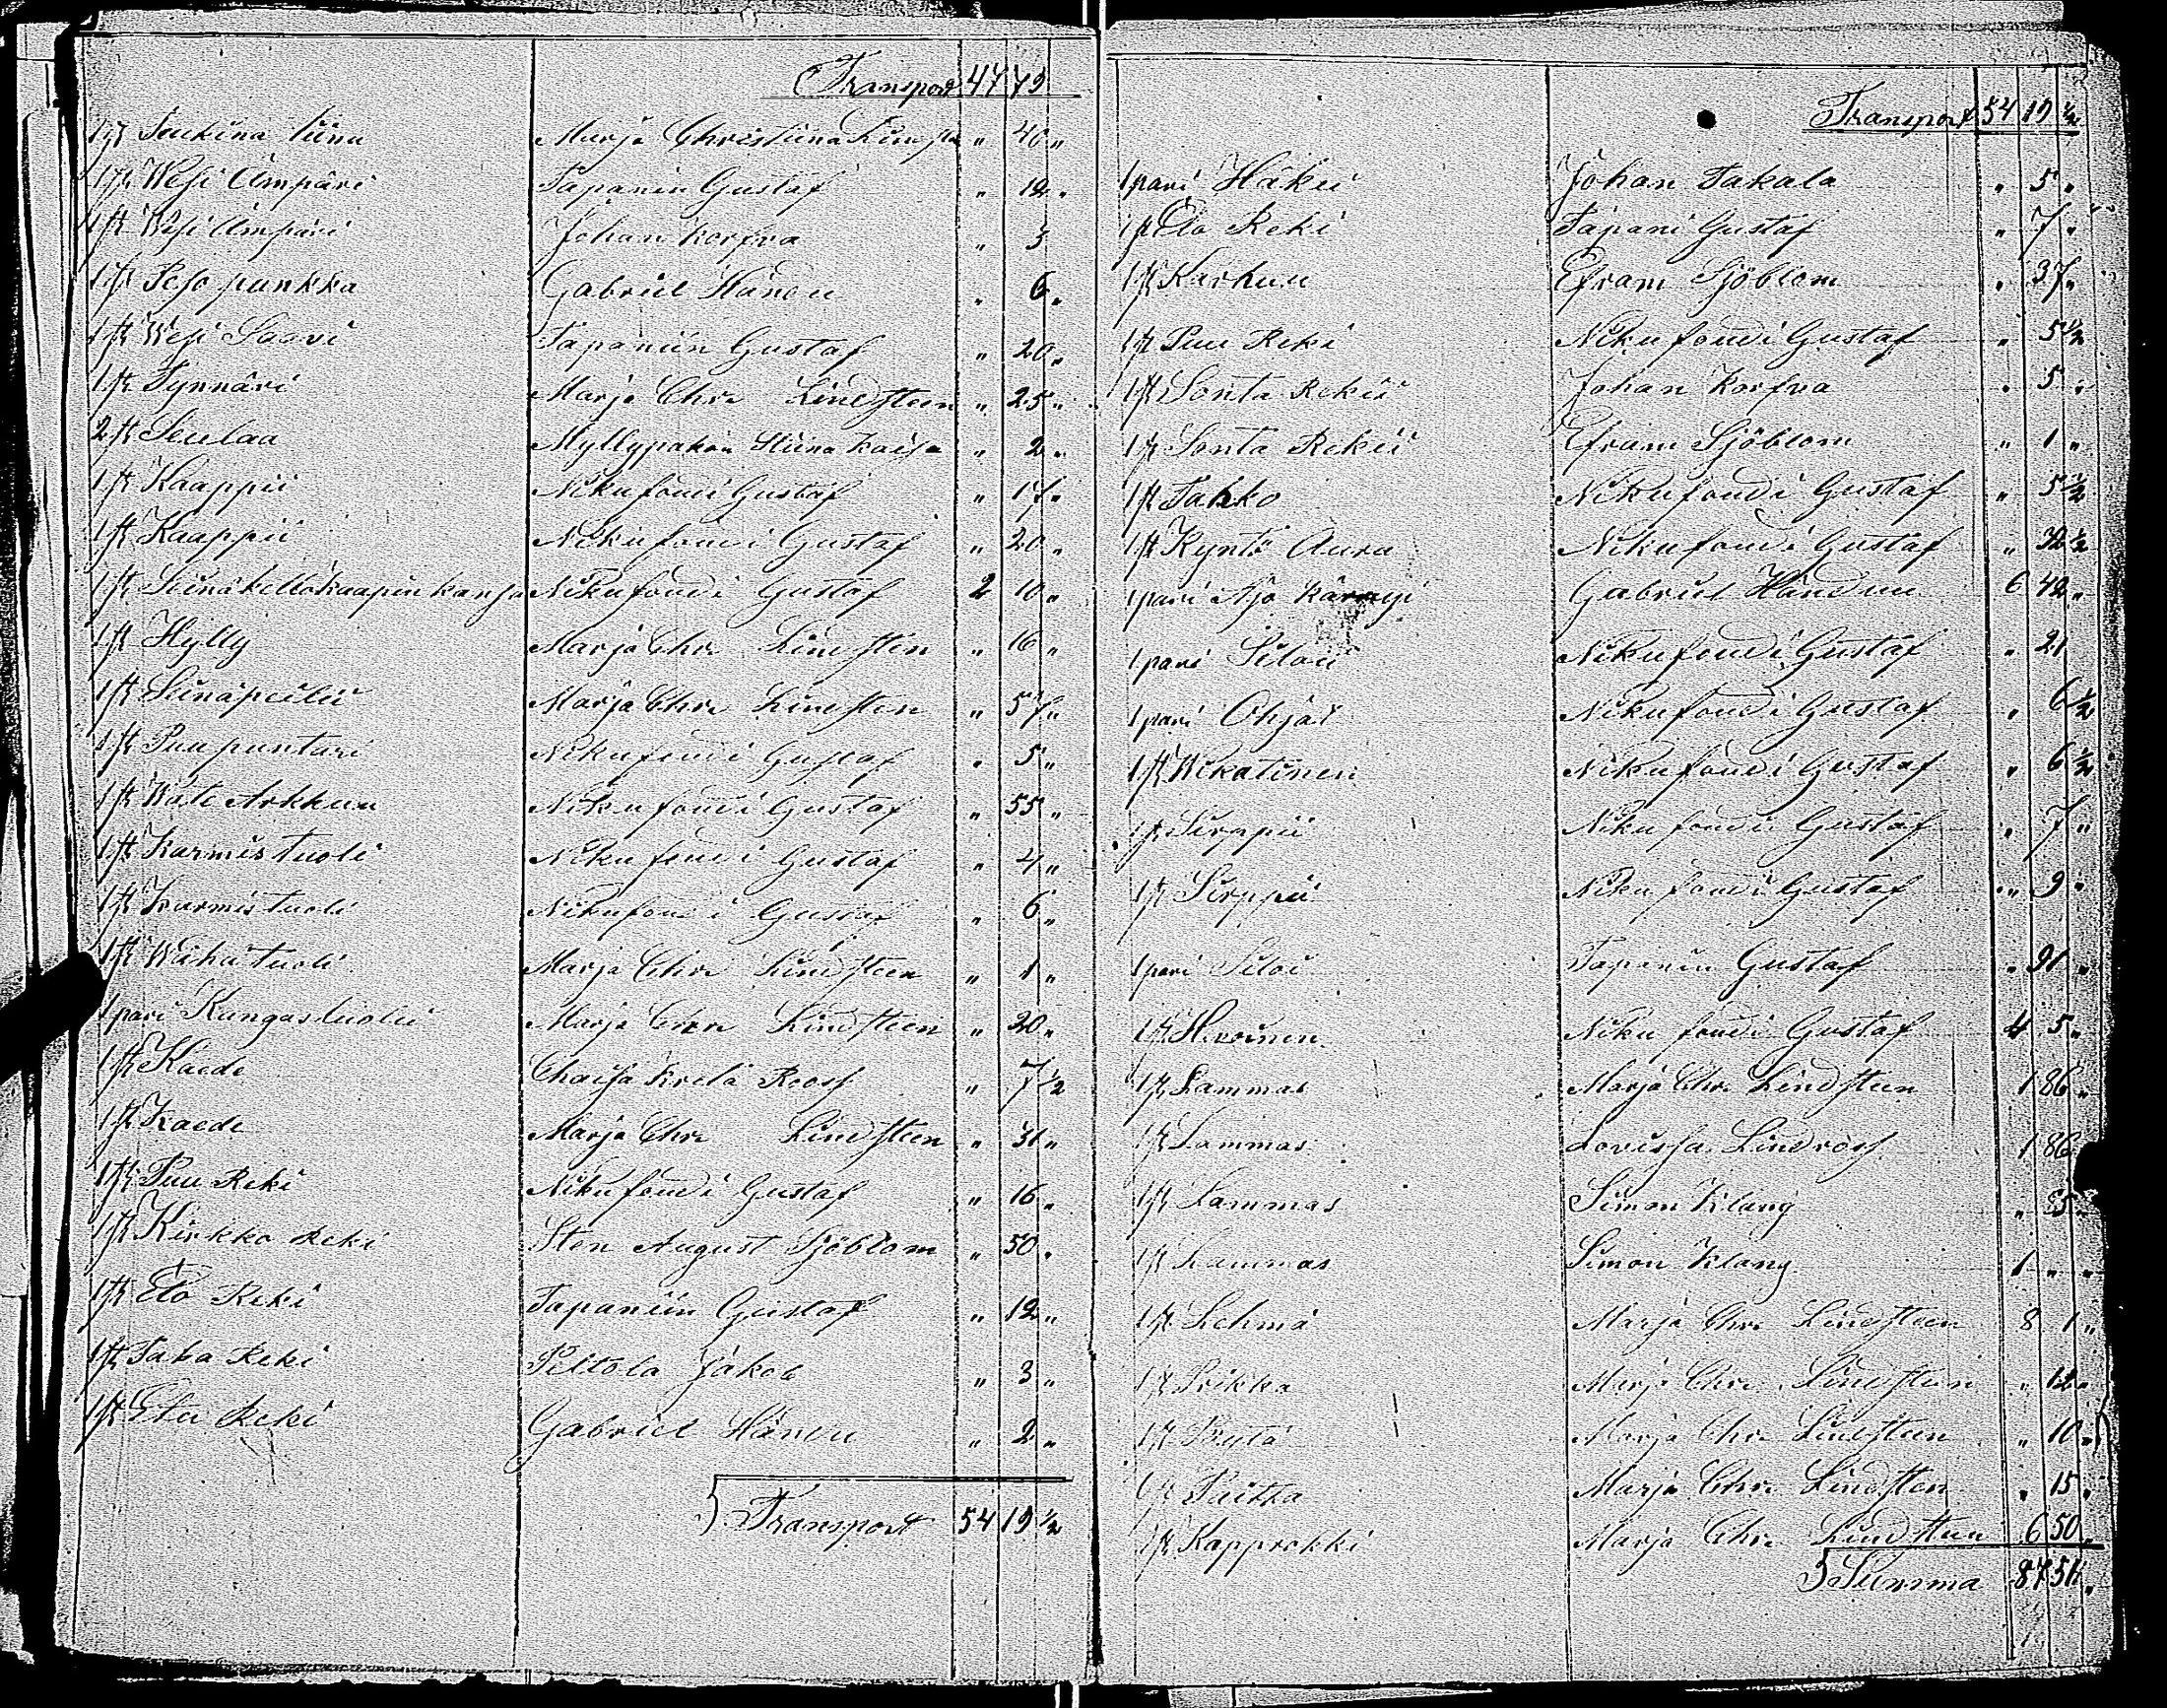 Transport 47 79
1 st Juukina tiinu Marja Christiina " 40 "
1 st Wesi Ämpäri Tapaniin Gustaf " 12 "
1 st Wesi Ämpäri Johan Korfva " 3
1 st Peso punkka Gabriel Händu " 6 "
1 st Wesi Saavi Tapaniin Gustaf " 20 "
1 st Tynnäri Marja Chr: Lindsteen " 25 "
2 st Seulaa Myllypakan Stiina Kaisa " 2 "
1 st Kaappii Nikufoudi Gustaf " 17 "
1 st Kaappii Nikufoudi Gustaf " 20 "
1 st Seinäkellokaapin kansa Nikufoudi Gustaf 2 10 "
1 st Hylly Marja Chr: Lindsten " 16 "
1 st Seinäpeilii Marja Chr: Lindsten " 57 "
1 st Puu puntari Nikufoudi Gustaf " 5 "
1 st Wate Arkkuu Nikufoudi Gustaf " 55 "
1 st Karmis tuoli Nikufoudi Gustaf " 4 "
1 st Karmis tuoli Nikufoudi Gustaf " 6 "
1 st Wähä tuoli Marja Chr: Lindsteen " 1 "
1 pari Kangastuolii Marja Chr: Lindsteen " 20 "
1 st Kaede Chaisa Kreta Roos " 7 ½
1 st Kaede Marja Chr: Lindsteen " 31 "
1 st Puu Reki Nikufoudi Gustaf " 16 "
1 st Kirkko Reki Sten August Sjöblom " 50 "
1 st Elo Reki Tapaniin Gustaf " 12 "
1 st Taka Reki Piltola Jakob " 3 "
1 st Etu Reki Gabriel Händu " 2 "
Transport 54 19 ½
Transport 54 19 ½
1 pari Häkii Johan Takala " 5 "
1 st Elo Reki Tapani Gustaf " 7 "
1 st Karhuu Efram Sjöblom " 37 "
1 st Puu Reki Nikufoudi Gustaf " 5 ½
1 st Sonta Rekii Johan Korfva " 5 "
1 st Sonta Rekii Efram Sjöblom " 1 "
1 st Tahko Nikufoudi Gustaf " 5 ½
1 st Kyntö Aura Nikufoudi Gustaf " 32 ½
1 pari Ajo Kärryi Gabriel Händuu 6 42 "
1 pari Siloii Nikufoudi Gustaf " 21
1 pari Ohjat Nikufoudi Gustaf " 6 ½
1 st Wikatinen Nikufoudi Gustaf " 6 ½
1 st Sirppii Nikufoudi Gustaf " 7 "
1 st Sirppii Nikufoudi Gustaf " 9 "
1 pari Siloi Tapaniin Gustaf " 91 "
1 st Hevoinen Nikufoudi Gustaf 4 5 "
1 st Lammas Marja Chr: Lindsteen 1 86 "
1 st Lammas Lovissa Lindros 1 86
1 st Lammas Simon Klang " 85 "
1 st Lammas Simon Klang 1 " "
1 st Lehmä Marja Chr: Lindsteen 8 1 "
1 st Prikka Marja Chr: Lindsteen " 12 "
1 st Pöytä Marja Chr: Lindsteen " 10 "
1 st Paitka Marja Chr: Lindsten " 15 "
1 st Kapprokki Marja Chr: Lindsteen 6 50 "
Summa 87 51 "